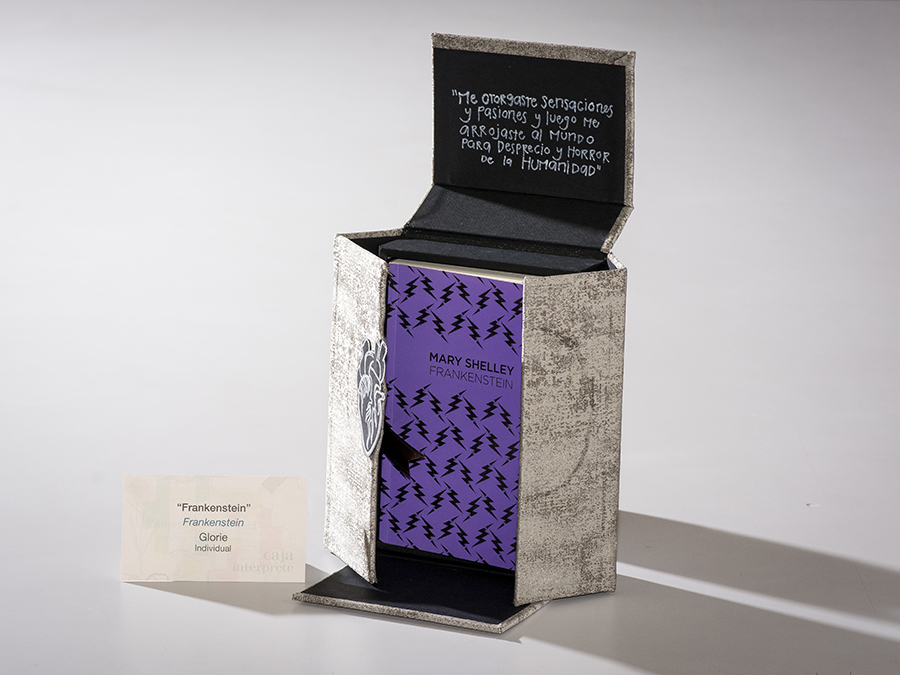 "Me otorgaste sensaciones
y pasiones y luego me
arrojaste al mundo
para desprecio y horror
de la humanidad"
MARY SHELLEY
FRANKENSTEIN
“Frankenstein”
Frankenstein
Glorie
Individual
caja
intérprete